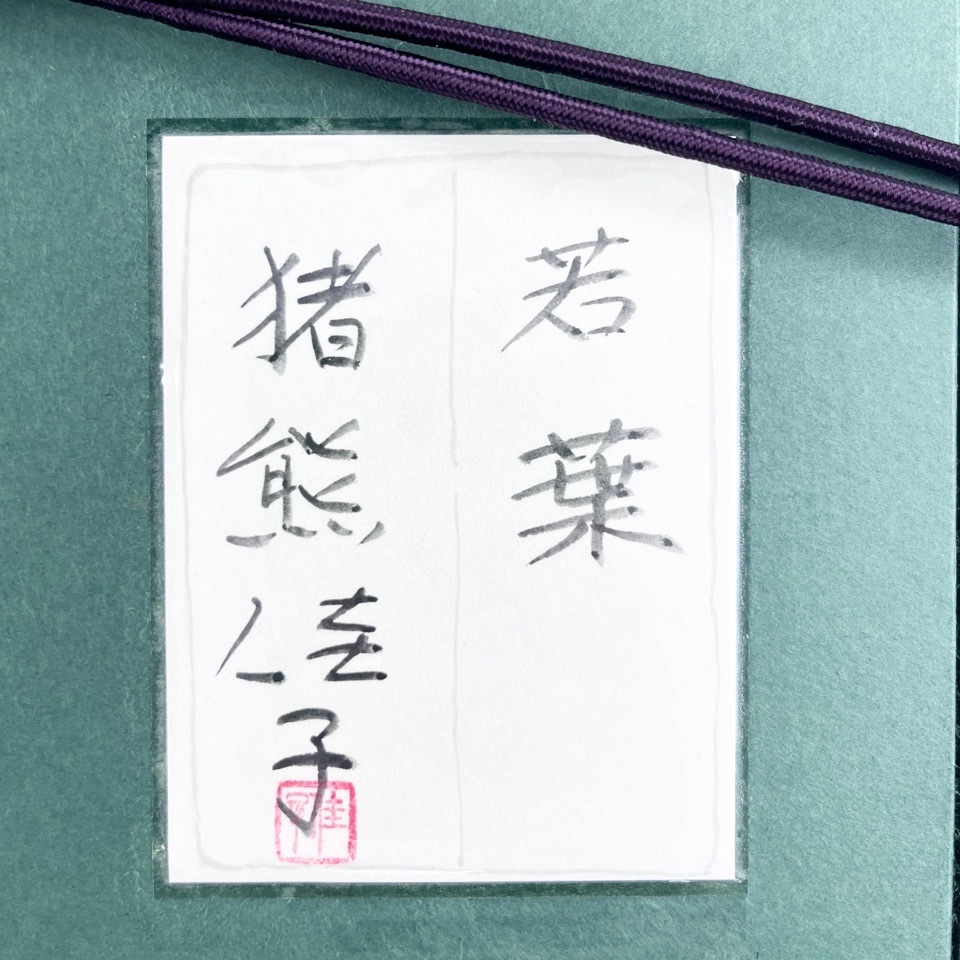 若葉
猪熊佳子